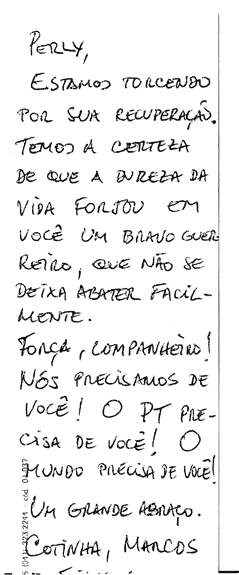 PERLY,
ESTAMOS TORCENDO
POR SUA RECUPERAÇÃO.
TEMOS A CERTEZA
DE QUE A DUREZA DA
VIDA FORJOU EM
VOCÊ UM BRAVO GUER
REIRO, QUE NÃO SE
DEIXA ABATER FACIL-
MENTE.
FORÇA, COMPANHEIRO!
NÓS PRECISAMOS DE
VOCÊ! O PT PRE-
CISA DE VOCÊ! O
MUNDO PRECISA DE VOCÊ!
UM GRANDE ABRAÇO.
COTINHA, MARCOS